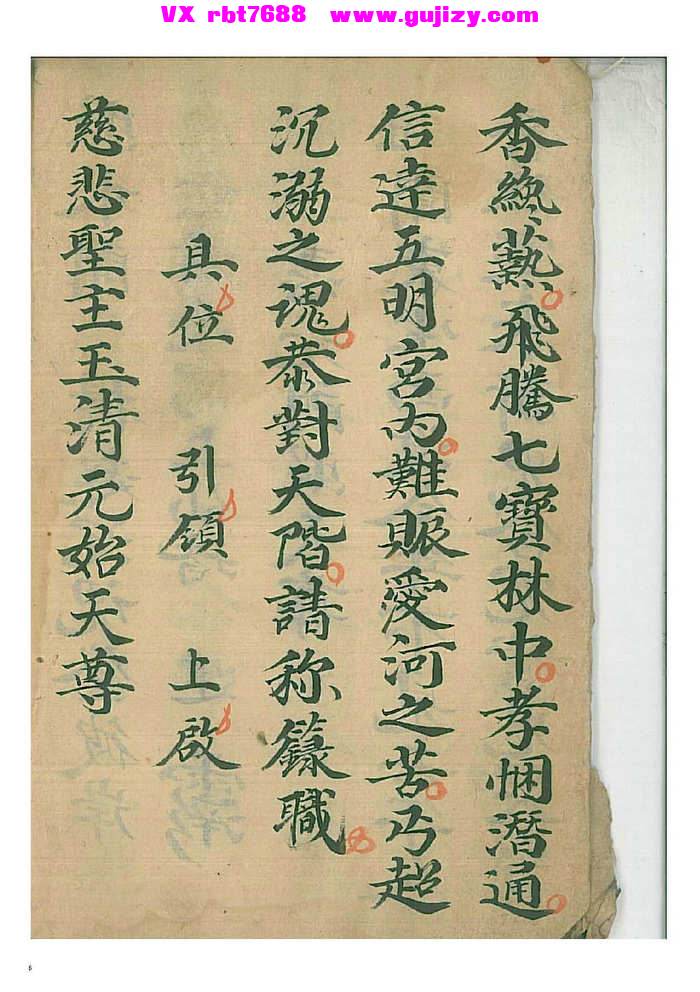 VX rbt7688 www.gujizy.com
香纔爇飛騰七寶林中孝悃潛通
信達五明宮内難賑愛河之苦乃超
沉溺之魂恭對天階請称籙職
具位 引領 上啟
慈悲聖主玉清元始天尊
6